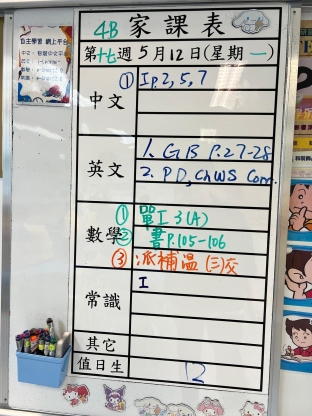 4B 家課表
第十七週5月12日(星期一)
自主學習 網上平台
中文
① Ip.2, 5, 7
英文
1. GB P.27-28
2. PD, Ch WS Corr.
數學
① 單I 3(A)
② 書P.105-106
③ 派補溫(三)交
常識
I
其它
值日生
12